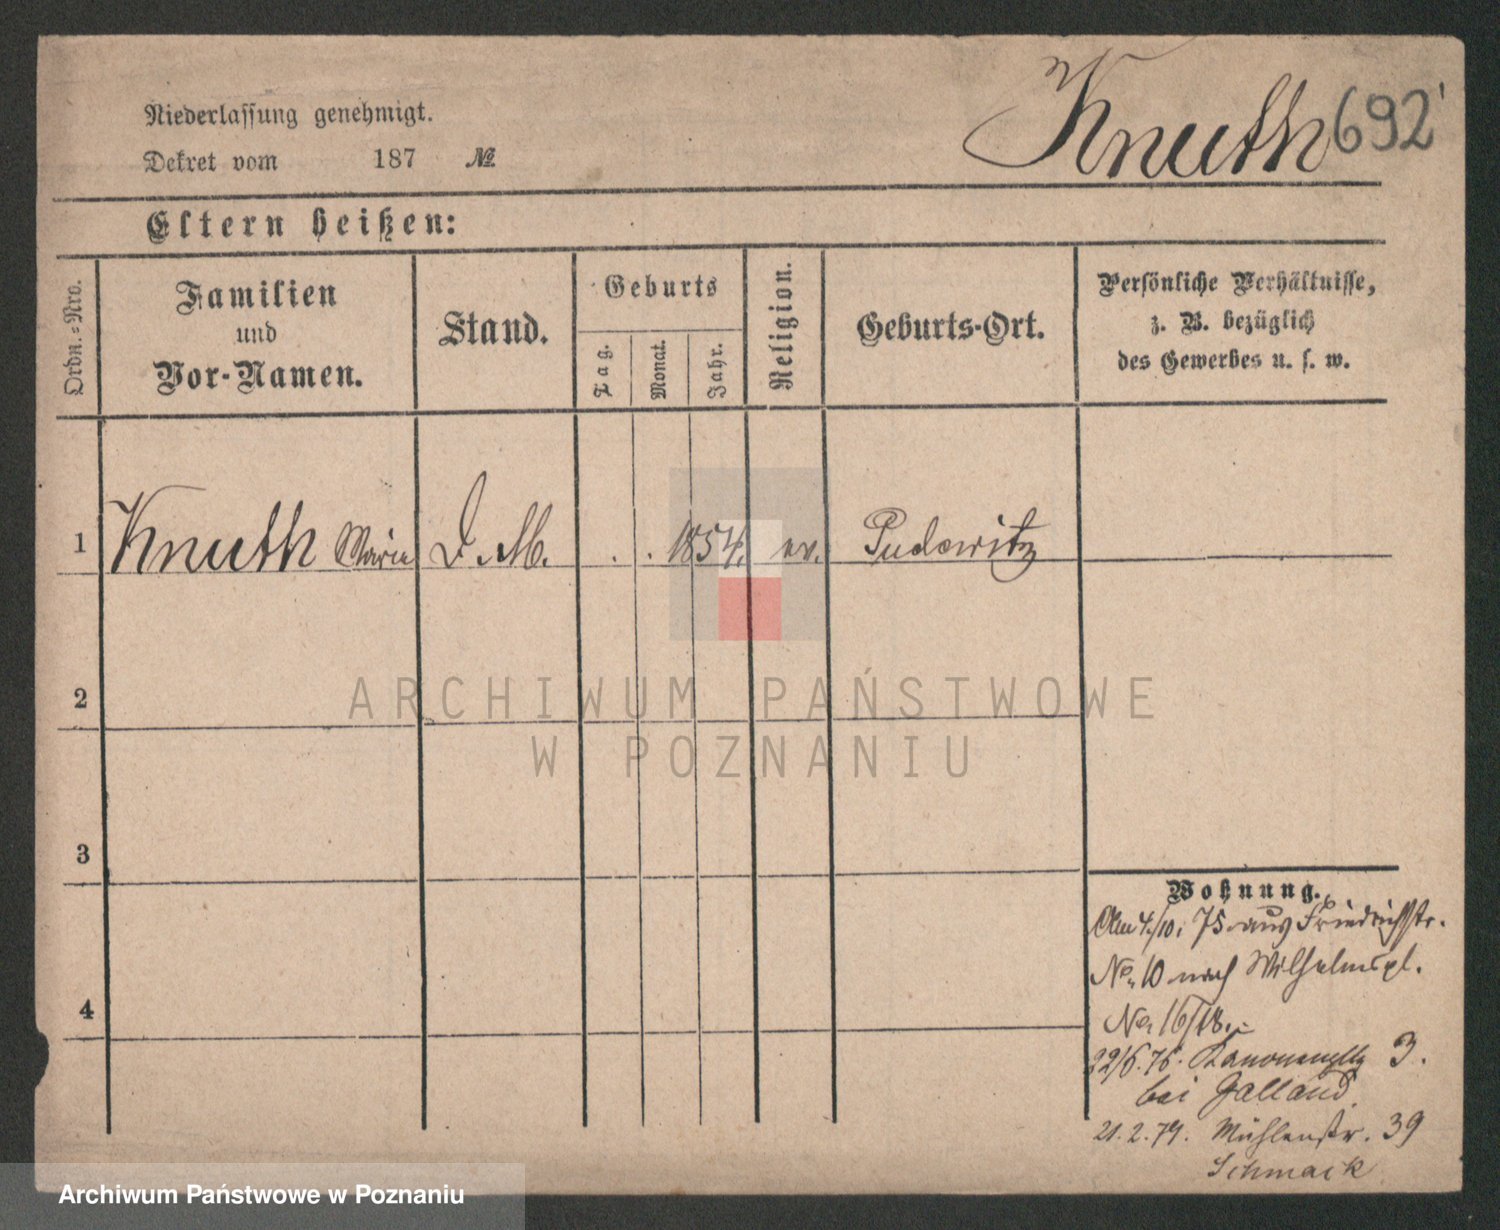 Niederlassung genehmigt.
Dekret vom 187 №
Knuth 692
Eltern heißen:
Ordn.-Nro.
Familien
und
Vor-Namen.
Stand.
Geburts
Tag.
Monat.
Jahr.
Religion.
Geburts-Ort.
Persönliche Verhältnisse,
z. B. bezüglich
des Gewerbes u. s. w.
1 Knuth Marie D. M. . . 1854. ev. Pudewitz
2
3
4
Wohnung.
Am 4./10. 75 aus Friedrichstr.
No. 10 nach Wilhelmspl.
No. 16/18.
22/6. 76. Kanonenpltz 3.
bei Galland.
21. 2. 79. Mühlenstr. 39
Schmack
ARCHIWUM PAŃSTWOWE
W POZNANIU
Archiwum Państwowe w Poznaniu